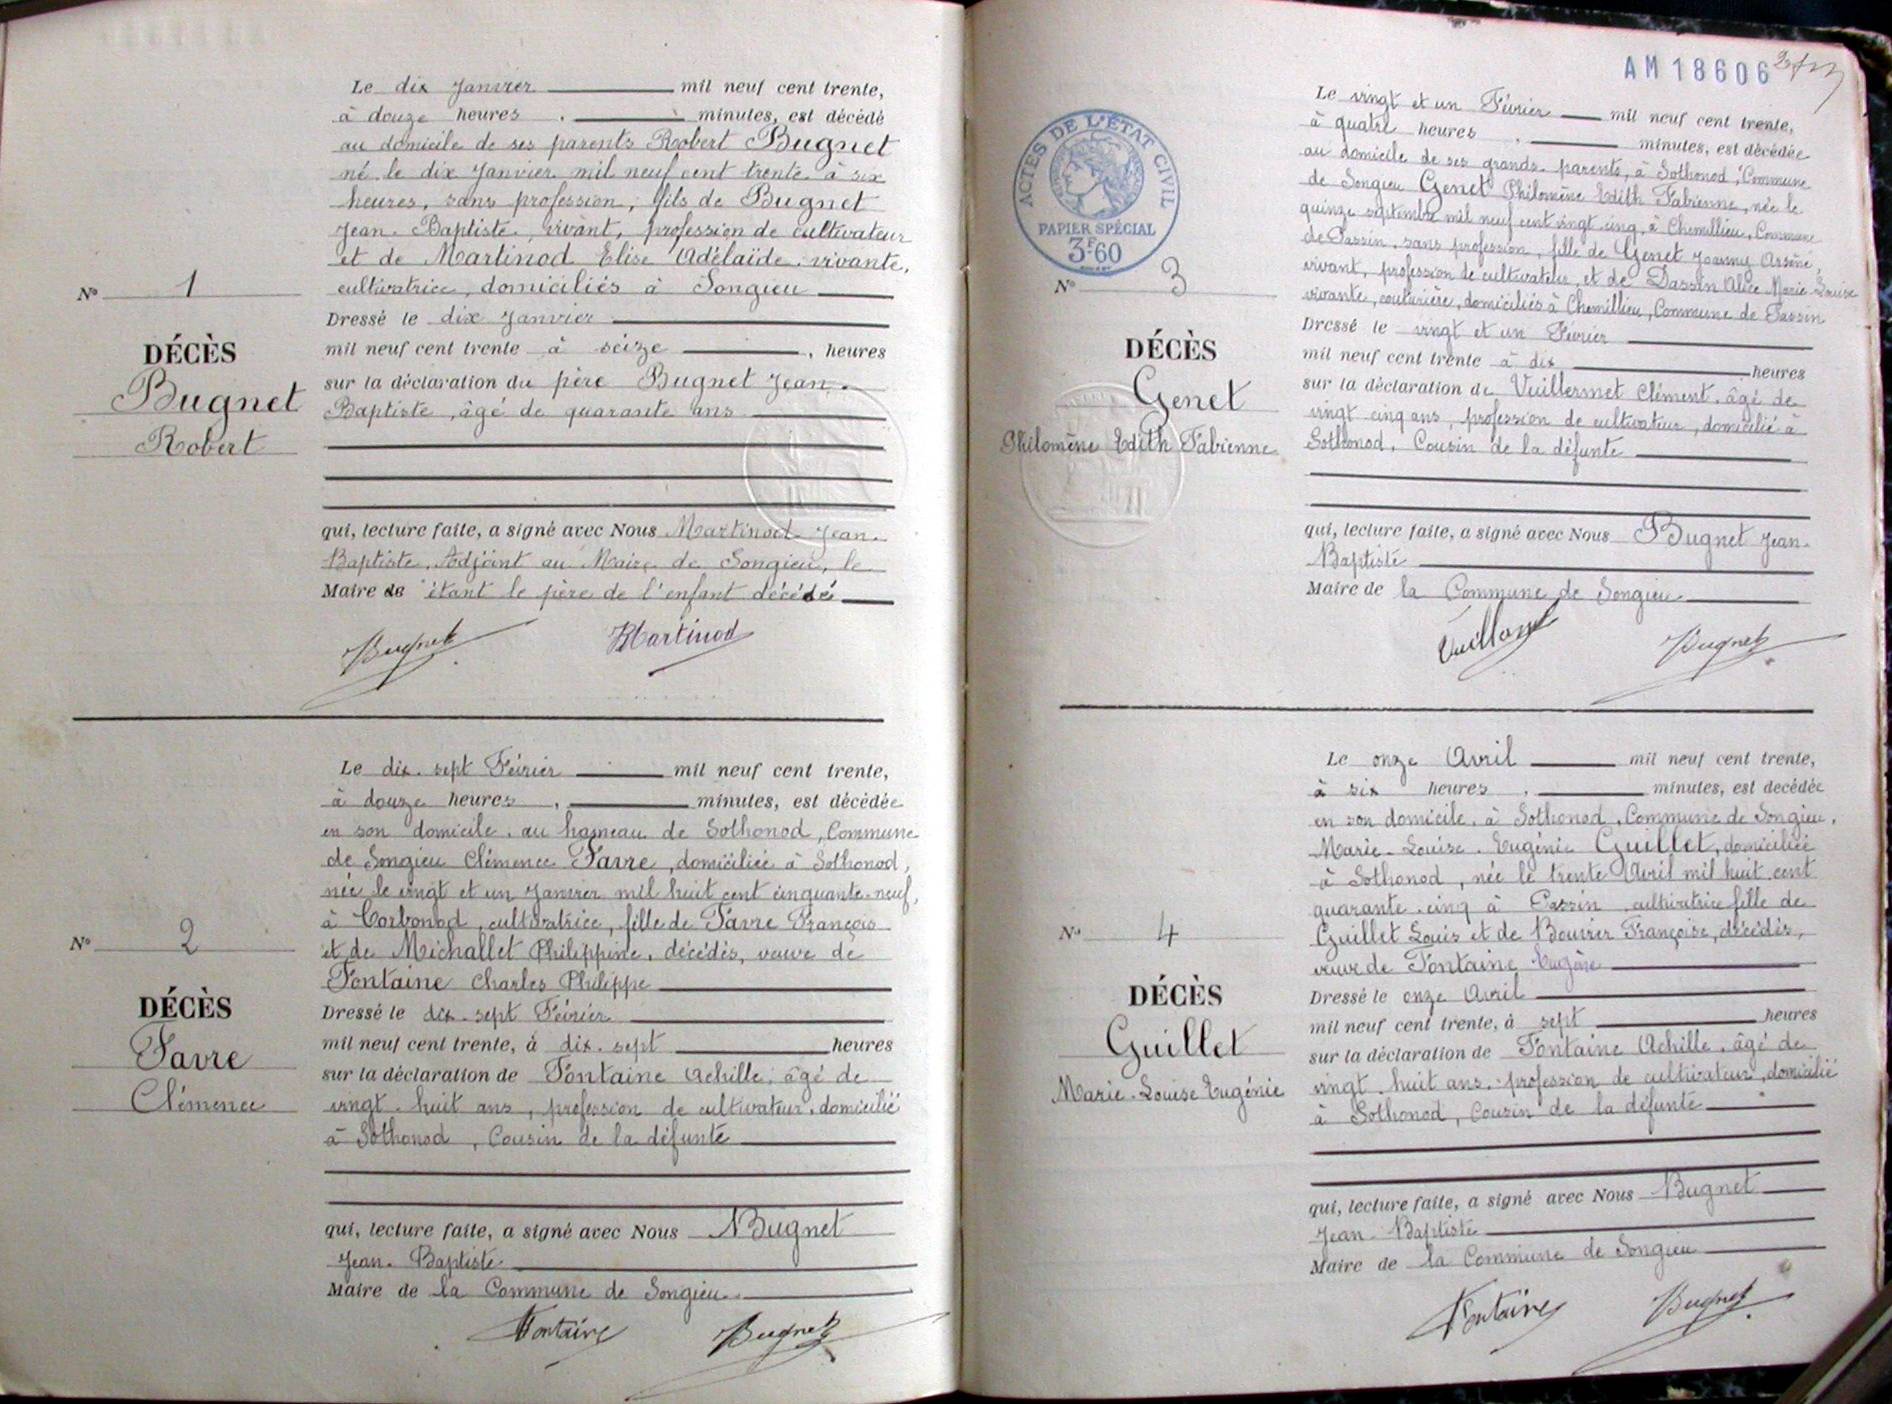 Le dix Janvier mil neuf cent trente,
à douze heures , minutes, est décédé
au domicile de ses parents Robert Bugnet
né le dix Janvier mil neuf cent trente à six
heures, sans profession, fils de Bugnet
Jean-Baptiste, vivant, profession de cultivateur
et de Martinod Elise Adélaïde, vivante,
cultivatrice, domiciliés à Songieu
Dressé le dix Janvier
mil neuf cent trente à seize , heures
sur la déclaration du père Bugnet Jean-
Baptiste, âgé de quarante ans
qui, lecture faite, a signé avec Nous Martinod Jean-
Baptiste, Adjoint au Maire de Songieu, le
Maire de étant le père de l'enfant décédé
Bugnet Martinod
N° 1
DÉCÈS
Bugnet
Robert
Le dix-sept Février mil neuf cent trente,
à douze heures , minutes, est décédée
en son domicile, au hameau de Sothonod, Commune
de Songieu Clémence Favre, domiciliée à Sothonod,
née le vingt et un Janvier mil huit cent cinquante-neuf,
à Corbonod, cultivatrice, fille de Favre François
et de Michallet Philippine, décédés, veuve de
Fontaine Charles Philippe
Dressé le dix-sept Février
mil neuf cent trente, à dix-sept heures
sur la déclaration de Fontaine Achille, âgé de
vingt-huit ans, profession de cultivateur, domicilié
à Sothonod, Cousin de la défunte
qui, lecture faite, a signé avec Nous Bugnet
Jean-Baptiste
Maire de la Commune de Songieu
Fontaine Bugnet
N° 2
DÉCÈS
Favre
Clémence
AM18606
ACTES DE L'ÉTAT CIVIL
PAPIER SPÉCIAL
3F60
Le vingt et un Février mil neuf cent trente,
à quatre heures , minutes, est décédée
au domicile de ses grands-parents, à Sothonod, Commune
de Songieu Genet Philomène Edith Fabienne, née le
quinze septembre mil neuf cent vingt-cinq, à Chemillieu, Commune
de Passin, sans profession, fille de Genet Joanny Arsène,
vivant, profession de cultivateur, et de Dassin Alice Marie-Louise
vivante, couturière, domiciliés à Chemillieu, Commune de Passin
Dressé le vingt et un Février
mil neuf cent trente à dix heures
sur la déclaration de Vuillermet Clément, âgé de
vingt cinq ans, profession de cultivateur, domicilié à
Sothonod, Cousin de la défunte
qui, lecture faite, a signé avec Nous Bugnet Jean-
Baptiste
Maire de la Commune de Songieu
Bugnet
N° 3
DÉCÈS
Genet
Philomène Edith Fabienne
Le onze Avril mil neuf cent trente,
à six heures , minutes, est décédée
en son domicile, à Sothonod, Commune de Songieu,
Marie-Louise-Eugénie Guillet, domiciliée
à Sothonod, née le trente Avril mil huit cent
quarante-cinq à Passin, cultivatrice fille de
Guillet Louis et de Bouvier Françoise, décédés,
veuve de Fontaine Eugène
Dressé le onze Avril
mil neuf cent trente, à sept heures
sur la déclaration de Fontaine Achille, âgé de
vingt-huit ans, profession de cultivateur, domicilié
à Sothonod, Cousin de la défunte
qui, lecture faite, a signé avec Nous Bugnet
Jean-Baptiste
Maire de la Commune de Songieu
Fontaine Bugnet
N° 4
DÉCÈS
Guillet
Marie-Louise Eugénie